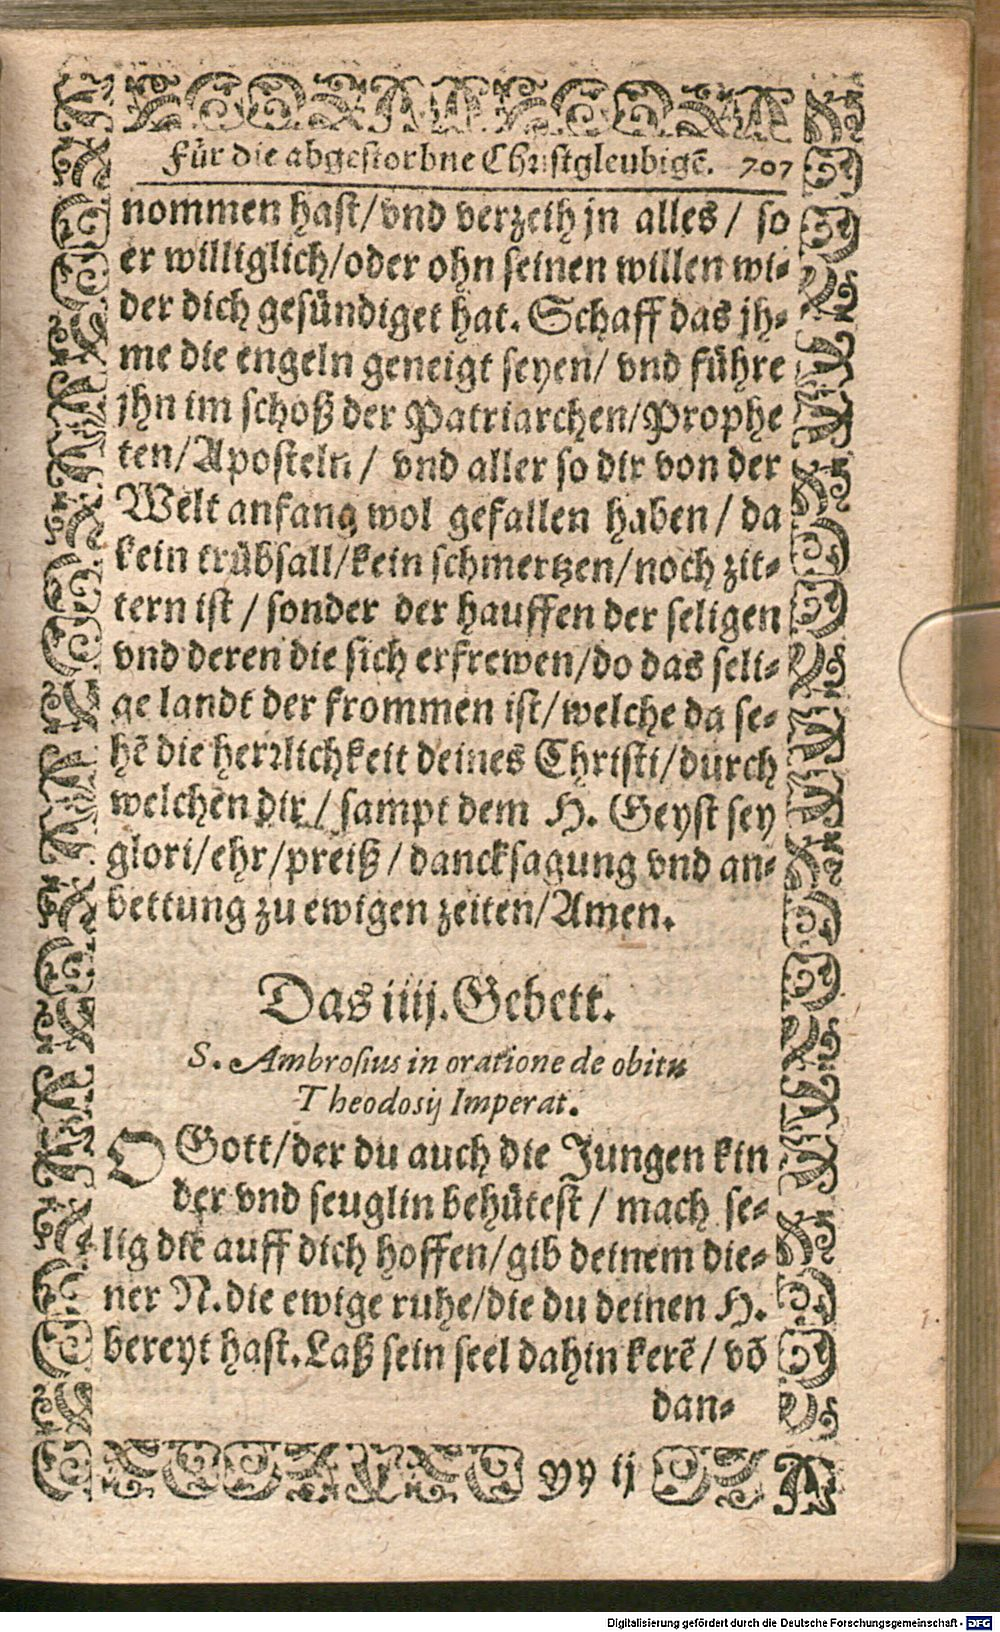 Für die abgestorbne Christgleubigẽ. 707
nommen hast/vnd verzeih jn alles / so
er williglich/oder ohn seinen willen wi-
der dich gesündiget hat. Schaff das jh-
me die engeln geneigt seyen/ vnd führe
jhn im schoß der Patriarchen/Prophe
ten/Aposteln / vnd aller so dir von der
Welt anfang wol gefallen haben / da
kein trübsall/kein schmertzen/noch zit-
tern ist / sonder der hauffen der seligen
vnd deren die sich erfrewen/do das seli-
ge landt der frommen ist/welche da se-
hẽ die herrlichkeit deines Christi/durch
welchen dir / sampt dem H. Geyst sey
glori/ehr/preiß / dancksagung vnd an-
bettung zu ewigen zeiten/Amen.
Das iiij. Gebett.
S. Ambrosius in oratione de obitu
Theodosij Imperat.
O Gott/der du auch die Jungen kin
der vnd seuglin behütest / mach se-
lig die auff dich hoffen/gib deinem die-
ner N. die ewige ruhe/die du deinen H.
bereyt hast. Laß sein seel dahin kerẽ / võ
dan-
yy ij
Digitalisierung gefördert durch die Deutsche Forschungsgemeinschaft - DFG